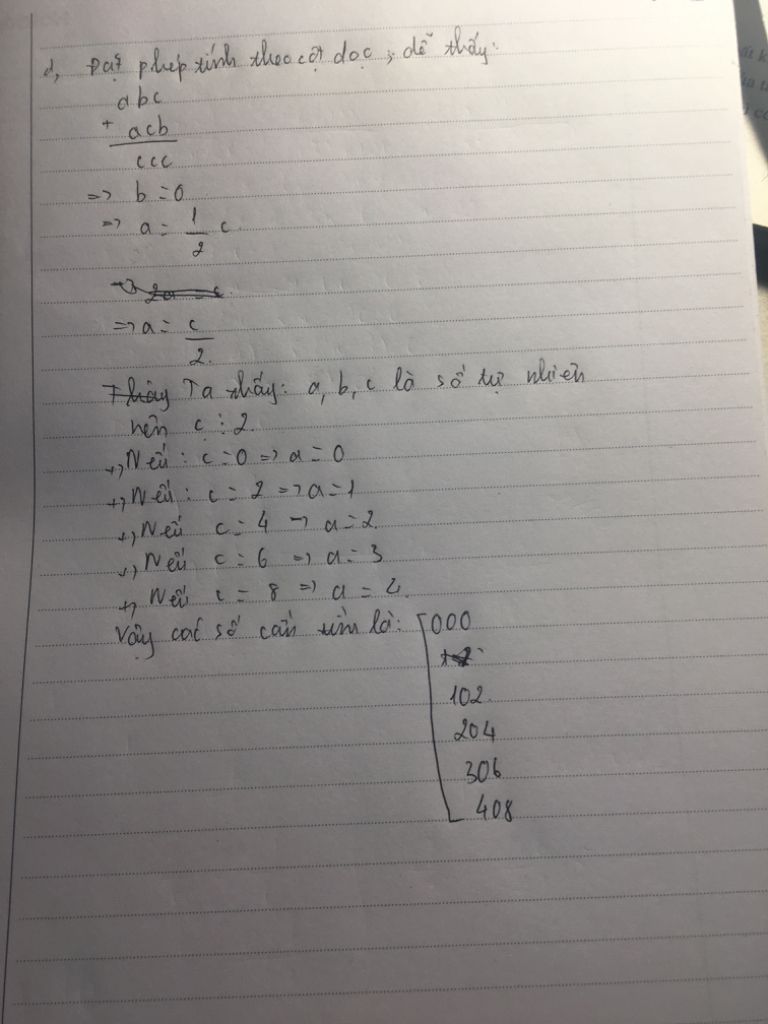 d, Đặt phép tính theo cột dọc, dễ thấy:
abc
+
acb
ccc
=> b = 0
=> a = 1/2 c
=> a = c/2
Ta thấy: a, b, c là số tự nhiên
nên c ⋮ 2.
+, Nếu: c = 0 => a = 0
+, Nếu: c = 2 => a = 1
+, Nếu c = 4 => a = 2.
+, Nếu c = 6 => a = 3
+, Nếu c = 8 => a = 4.
Vậy các số cần tìm là: [000
102.
204
306
408